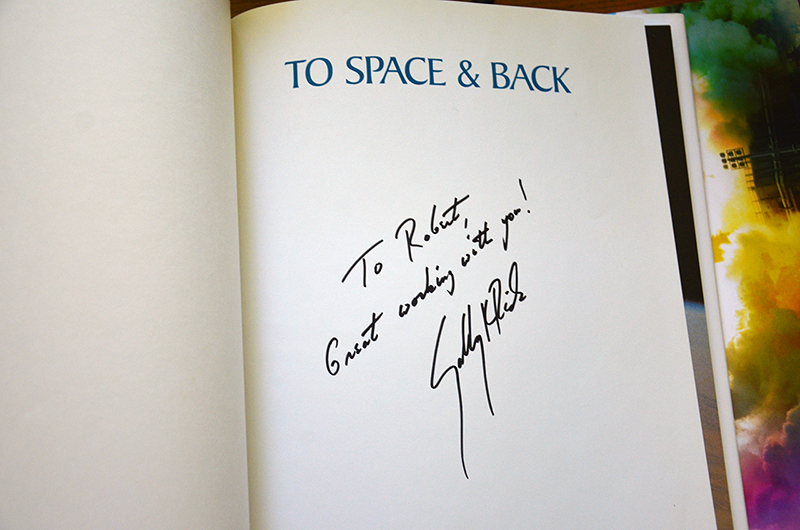 TO SPACE & BACK
To Robert,
Great working with you!
Sally K Ride